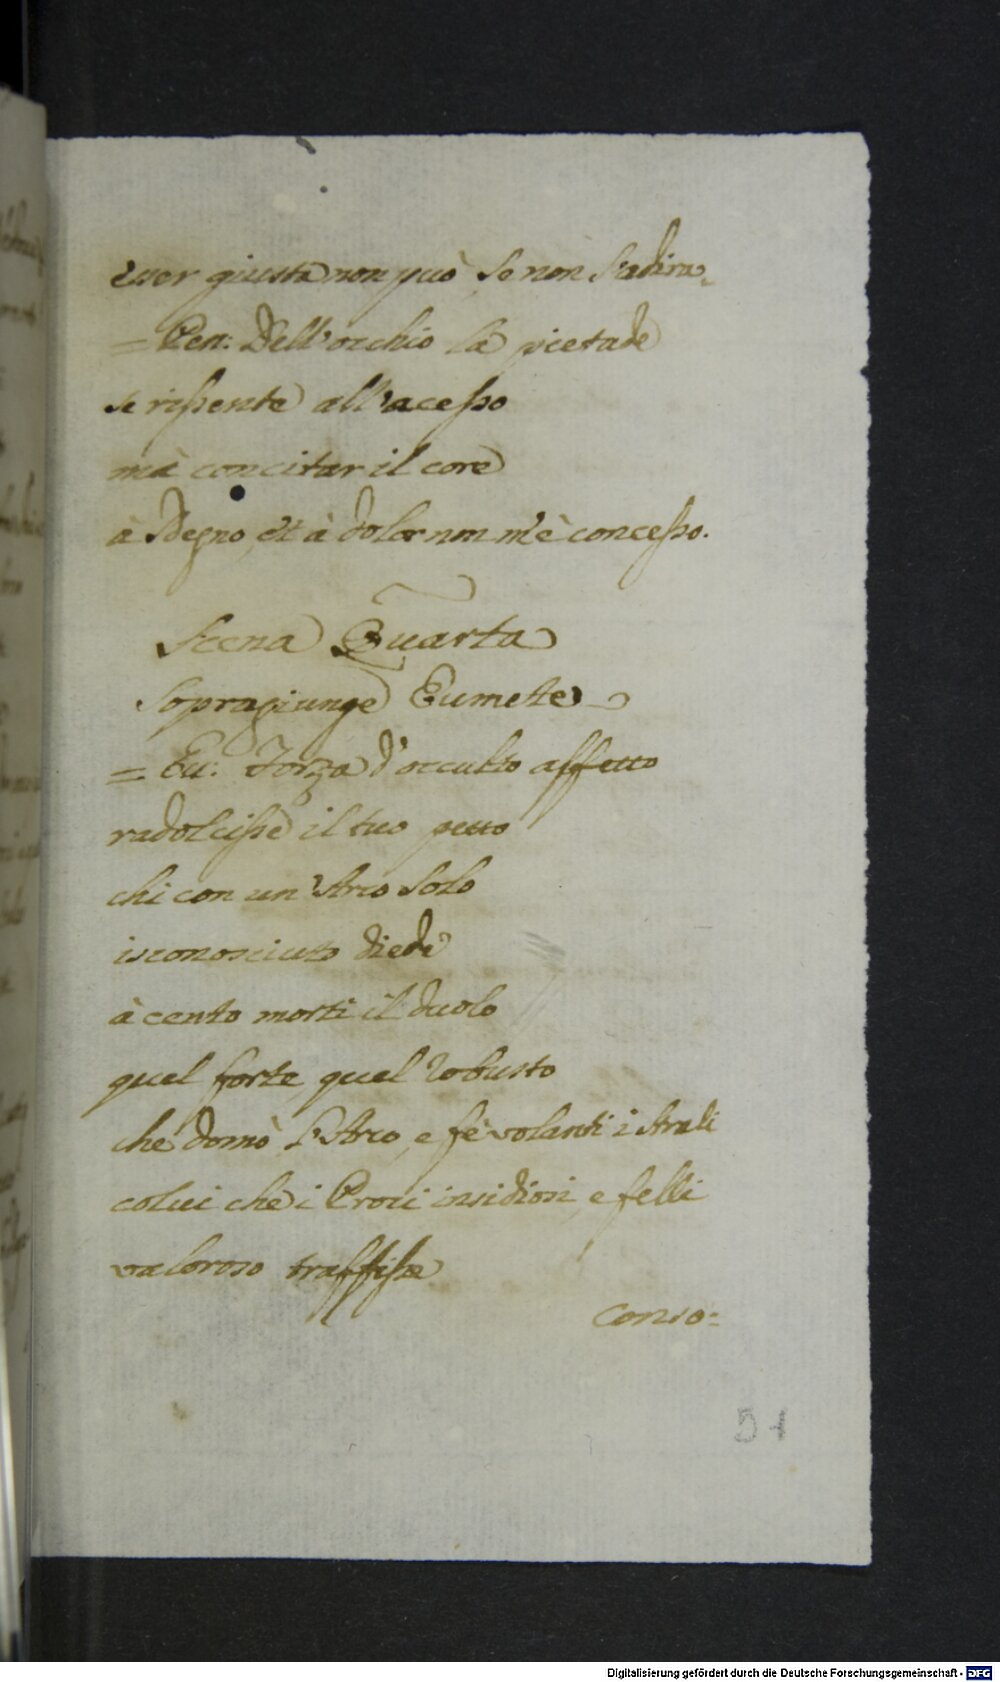 esser giusta non può, se non s'adira.
= Pen: Dell'occhio la pietade
se rissente all'acesso
mà concitar il core
à sdegno, et à dolor non m'è concesso.
Scena Quarta
Sopragiunge Eumete
= Eu: Forza d'occulto affetto
radolcisse il tuo petto
chi con un'Arco solo
isconosciuto diede
à cento morti il duolo
quel forte, quel robusto
che domò l'Arco, e fè volanti i strali
colui che i Proci insidiosi, e felli
valoroso traffisse
conso=
51
Digitalisierung gefördert durch die Deutsche Forschungsgemeinschaft - DFG